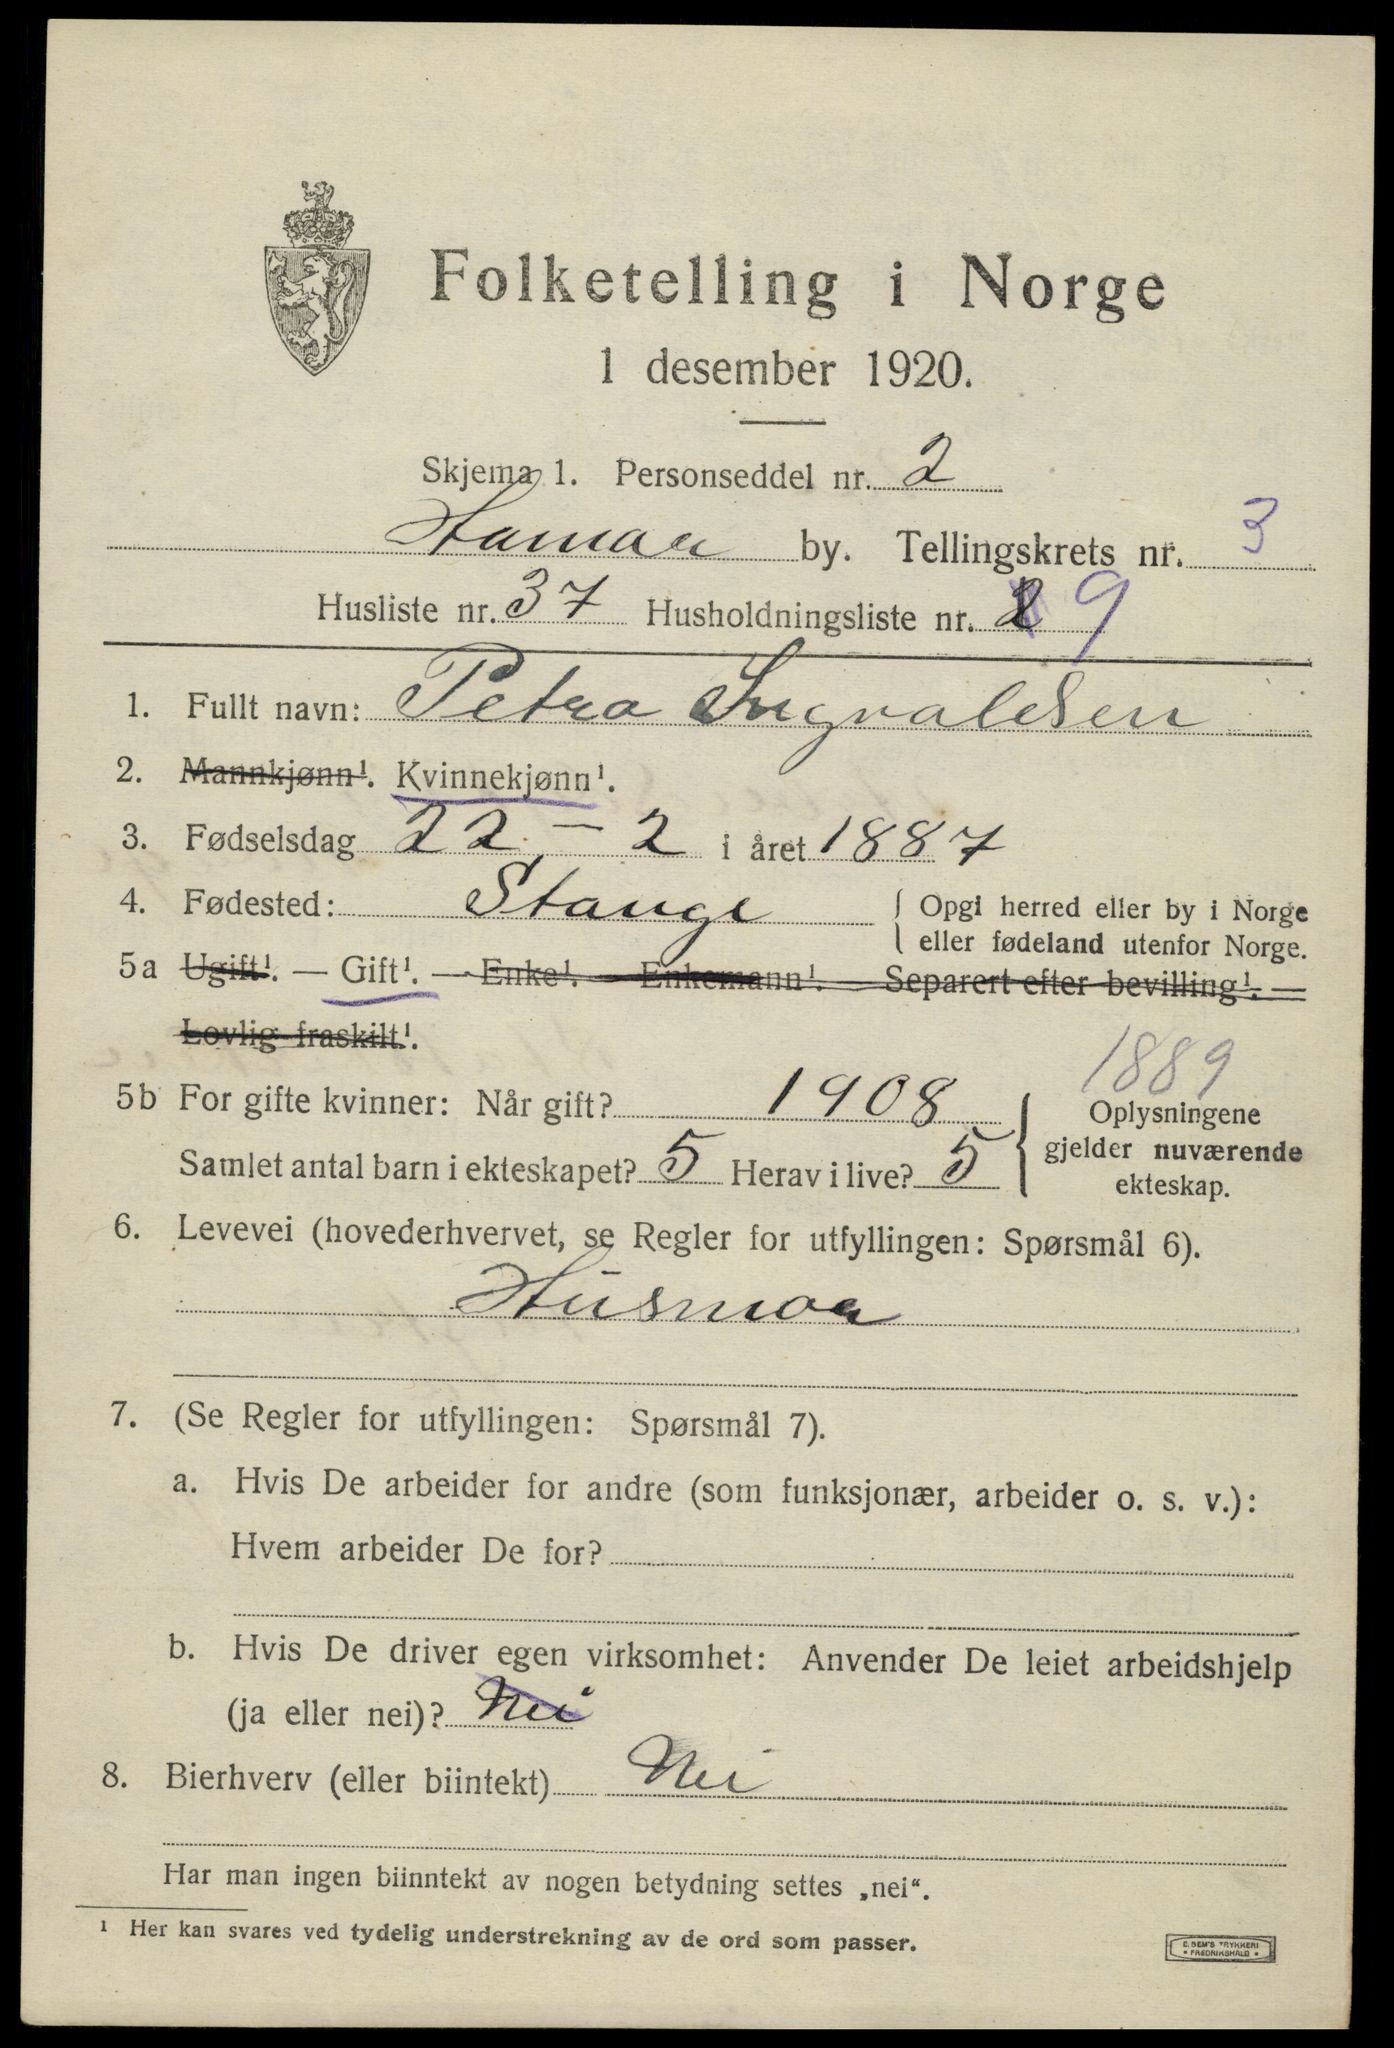 Folketelling i Norge
1 desember 1920.
Skjema 1. Personseddel nr. 2
Hamar by. Tellingskrets nr. 3
Husliste nr. 37 Husholdningsliste nr. 2 9
1. Fullt navn: Petra Ingvaldsen
2. Mannkjønn¹. Kvinnekjønn¹.
3. Fødselsdag 22 - 2 i året 1887
4. Fødested: Stange { Opgi herred eller by i Norge
eller fødeland utenfor Norge.
5a Ugift¹. — Gift¹. — Enke¹. — Enkemann¹. — Separert efter bevilling¹. —
Lovlig fraskilt¹.
1889
5b For gifte kvinner: Når gift? 1908 Oplysningene
gjelder nuværende
Samlet antal barn i ekteskapet? 5 Herav i live? 5 ekteskap.
6. Levevei (hovederhvervet, se Regler for utfyllingen: Spørsmål 6).
Husmoer
7. (Se Regler for utfyllingen: Spørsmål 7).
a. Hvis De arbeider for andre (som funksjonær, arbeider o. s. v.):
Hvem arbeider De for?
b. Hvis De driver egen virksomhet: Anvender De leiet arbeidshjelp
(ja eller nei)? Nei
8. Bierhverv (eller biintekt) Nei
Har man ingen biinntekt av nogen betydning settes „nei“.
¹ Her kan svares ved tydelig understrekning av de ord som passer.
E. SEM'S TRYKKERI
• FREDRIKSHALD •